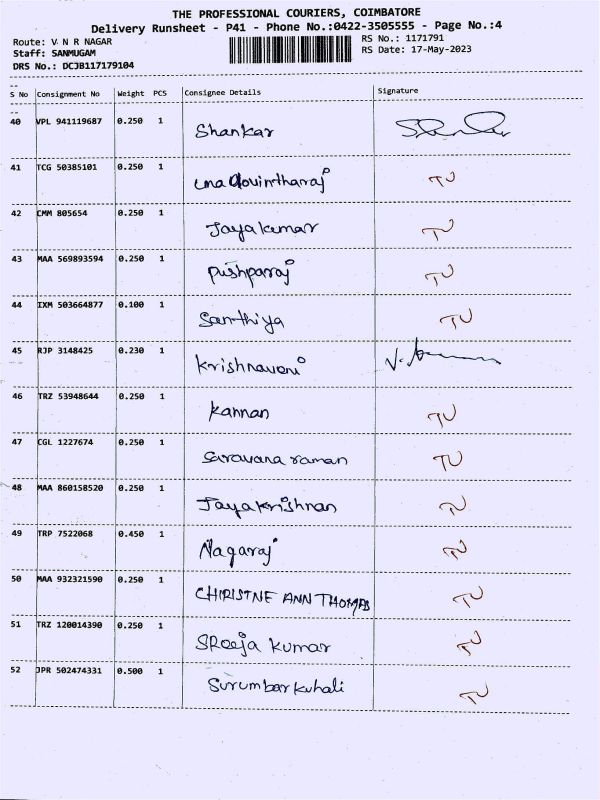 THE PROFESSIONAL COURIERS, COIMBATORE
Delivery Runsheet - P41 - Phone No.:0422-3505555 - Page No.:4
Route: V N R NAGAR RS No.: 1171791
Staff: SANMUGAM RS Date: 17-May-2023
DRS No.: DCJB117179104
S No Consignment No Weight PCS Consignee Details Signature
40 VPL 941119687 0.250 1 Shankar
41 TCG 50385101 0.250 1 TU
42 CMM 805654 0.250 1 Jayakumar TU
43 MAA 569893594 0.250 1 Pushparaj TU
44 IXM 503664877 0.100 1 Santhiya TU
45 RJP 3148425 0.230 1 Krishnaveni
46 TRZ 53948644 0.250 1 Kannan TU
47 CGL 1227674 0.250 1 Saravana raman TU
48 MAA 860158520 0.250 1 Jayakrishnan TU
49 TRP 7522068 0.450 1 Nagaraj TU
50 MAA 932321590 0.250 1 CHIRISTNE ANN THOMAS TU
51 TRZ 120014390 0.250 1 SReeja Kumar TU
52 JPR 502474331 0.500 1 Surumbarkuhali TU